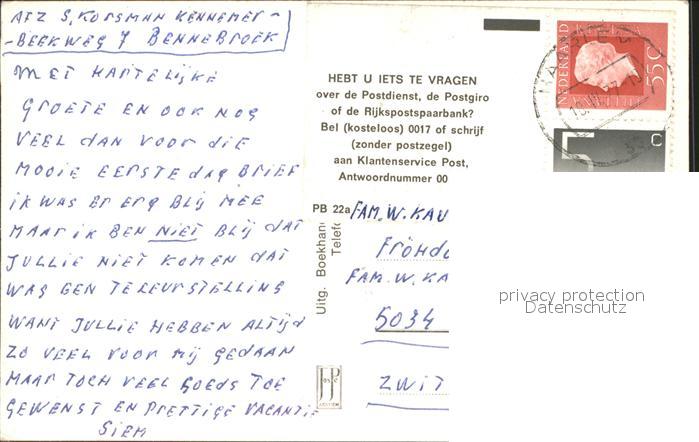 AFZ S, KORSMAN KENNEMER-
-BEEKWEG 7 BENNEBROEK
MET HARTELIJKE
GROETE EN OOK NOG
VEEL DAN VOOR DIE
MOOIE EERSTE DAG BRIEF
IK WAS ER ERG BLIJ MEE
MAAR IK BEN NIET BLIJ DAT
JULLIE NIET KOMEN DAT
WAS EEN TELEURSTELLING
WANT JULLIE HEBBEN ALTIJD
ZO VEEL VOOR MIJ GEDAAN
MAAR TOCH VEEL GOEDS TOE
GEWENST EN PRETTIGE VACANTIE
SIEM
HEBT U IETS TE VRAGEN
over de Postdienst, de Postgiro
of de Rijkspostspaarbank?
Bel (kosteloos) 0017 of schrijf
(zonder postzegel)
aan Klantenservice Post,
Antwoordnummer 00
PB 22a
Uitg. Boekhan
Telef
FAM. W. KAU
FRÖHDO
FAM. W. KA
5034
ZWIT
NEDERLAND
55
5
C
privacy protection
Datenschutz